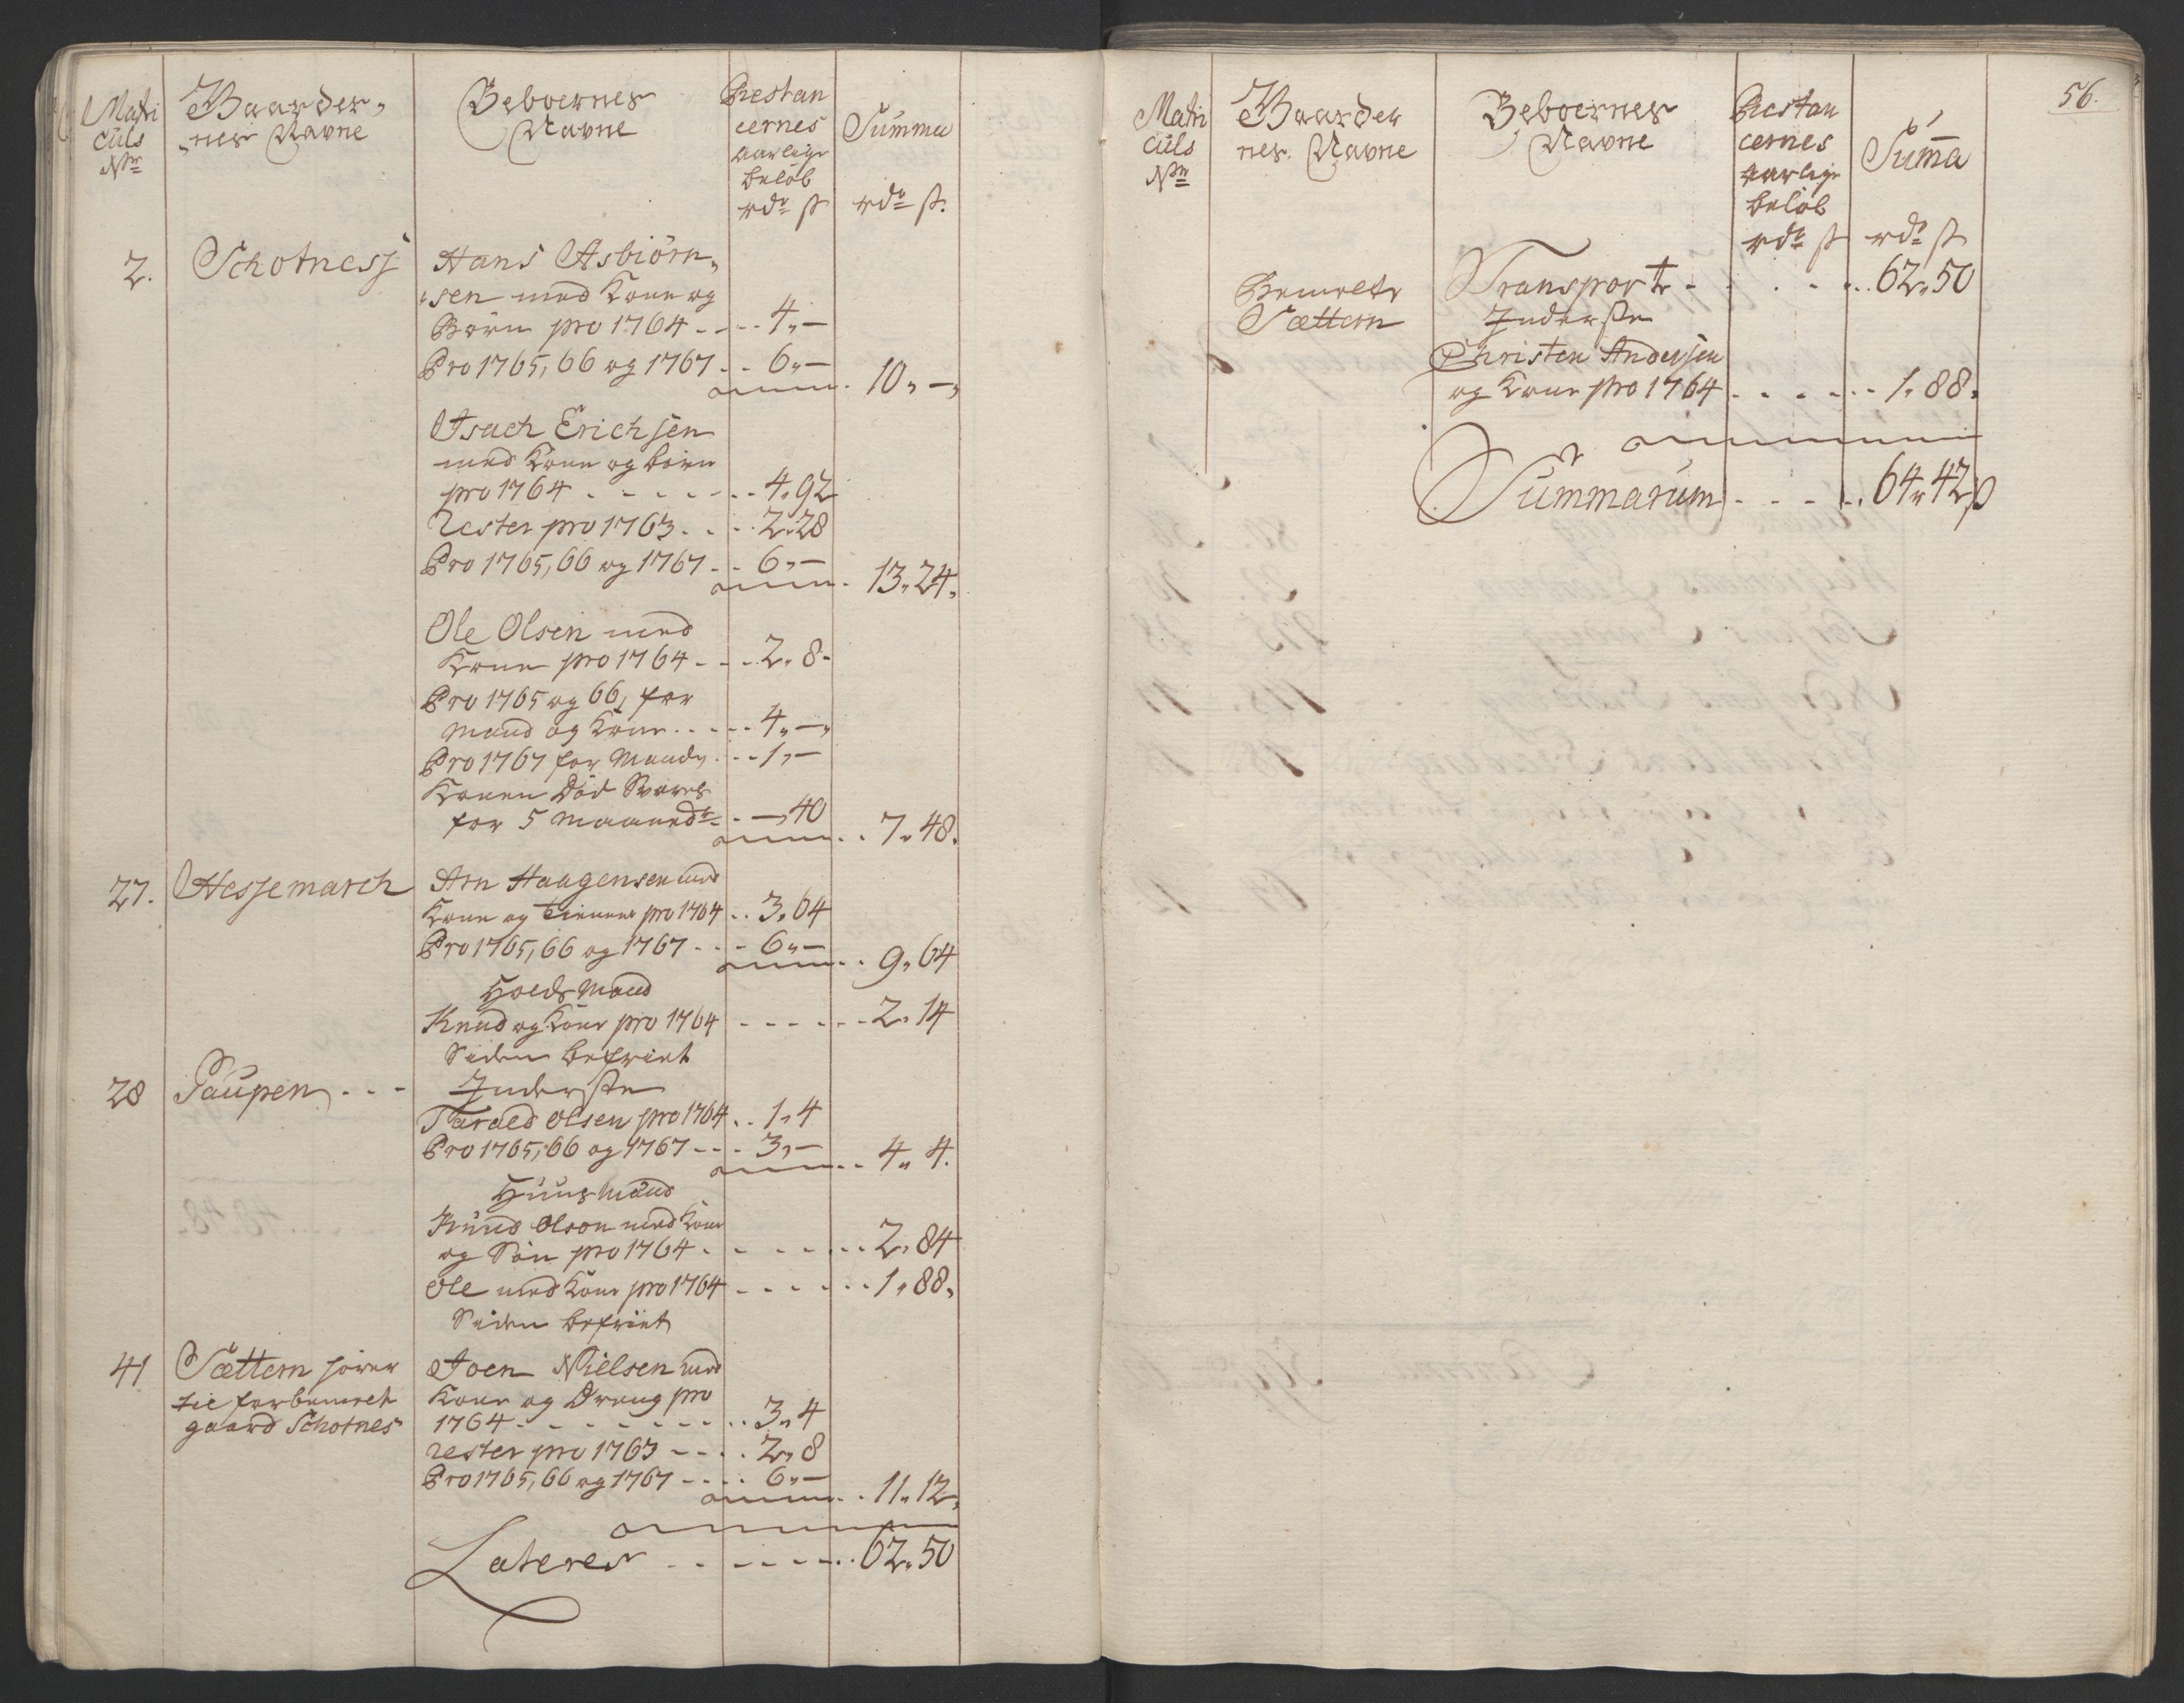 Matri
culs
Nr
Gaarder-
nes Navne
Beboernes
Navne
Restan
cernes
aarlige
beløb
rdr ß
Summa
rdr ß.
2.
Schotness
Hans Asbiörn-
sen med Kone og
Börn pro 1764 - - - - 4„ —
Pro 1765, 66 og 1767 - - 6„ —
10„ —„
Isach Erichsen
med Kone og börn
pro 1764 - - - - - - - 4„ 92
Rester pro 1763 - - - - 2„ 28
Pro 1765, 66 og 1767 - - 6„ —
13„ 24„
Ole Olsen med
Kone pro 1764 - - - - 2„ 8 -
Pro 1765 og 66, for
Mand og Kone - - - - 4„ —„
Pro 1767 for Manden - - 1„ —
Konen Död Svares
for 5 maaneder - - —„ 40
7„ 48„
27.
Hessemarch
Arn Haagensen med
Kone og tienere pro 1764 - - 3„ 64
Pro 1765, 66 og 1767 - - - 6„ —
9„ 64
Holdsmand
Knud og Kone pro 1764 - - - - - - 2„ 14
Siden befriet
28
Paupen - - -
Inderste
Tarald Olsen pro 1764 - - 1„ 4
Pro 1765, 66 og 1767 - - - 3„ —
4„ 4.
Huusmænd
Knud Olson med Kone
og Sön pro 1764 - - - - - - - 2„ 84
Ole med Kone pro 1764 - - - - - - 1„ 88„
Siden befriet
41
Sættern hörer
til forbemelte
gaard Schotnes
Joen Nielsen med
Kone og Dreng pro
1764 - - - - - - - - 3„ 4
rester pro 1763 - - - - 2„ 8
Pro 1765, 66 og 1767 - - - - 6„ —
11„ 12„
Lateres - - - - - - - 62„ 50
56.
Matri
culs
Nr
Gaarder
nes Navne
Beboernes
Navne
Restan
cernes
aarlige
beløb
rdr ß
Summa
rdr ß
Bemelte
Sættern
Transport - - - - - - 62„ 50
Inderste
Christen Andersen
og Kone pro 1764 - - - - - - 1„ 88„
Summarum - - - - - 64„ 42 ß